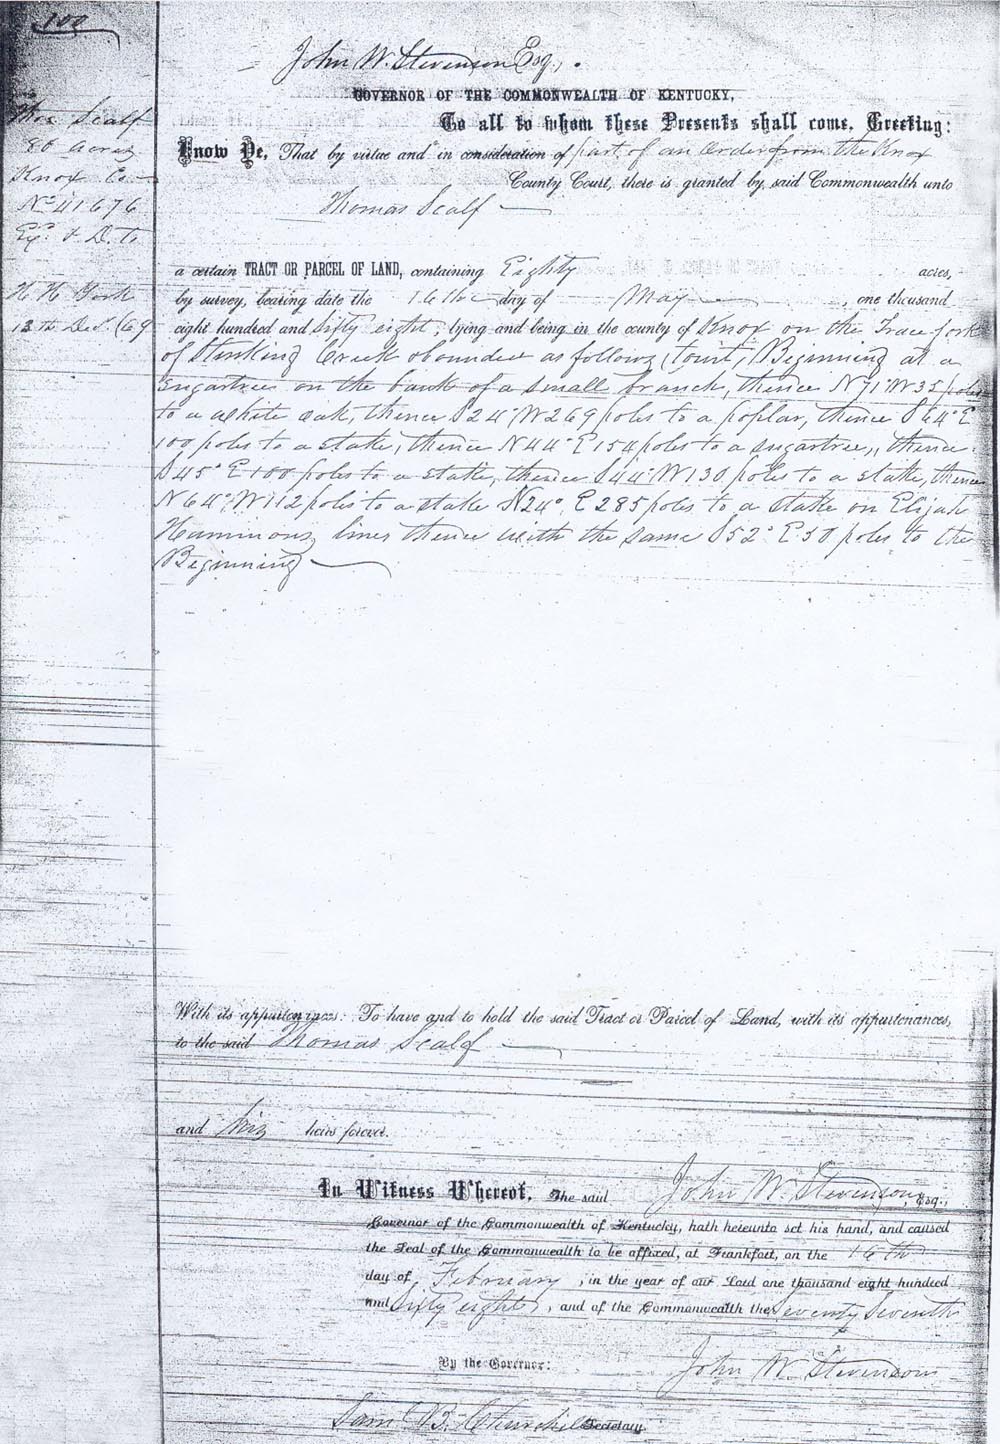 100
John W. Stevenson Esq.,
GOVERNOR OF THE COMMONWEALTH OF KENTUCKY,
To all to whom these Presents shall come, Greeting:
Know Ye, That by virtue and in consideration of part of an Order from the Knox
County Court, there is granted by said Commonwealth unto
Thomas Scalf
Thos Scalf
80 acres
Knox Co
No 41676
Ex. & D. to
H H York
13th Dec. (69
a certain TRACT OR PARCEL OF LAND, containing Eighty acres,
by survey, bearing date the 16th day of May, one thousand
eight hundred and fifty eight, lying and being in the county of Knox on the Trace fork
of Stinking Creek & bounded as follows, (towit,) Beginning at a
sugartree on the bank of a small branch, thence N71°W 35 poles
to a white oak, thence S24°W 269 poles to a poplar, thence S64°E
100 poles to a stake, thence N44°E 154 poles to a sugartree, thence
S45°E 100 poles to a stake, thence S44°W 130 poles to a stake, thence
N64°W 112 poles to a stake N24°E 285 poles to a stake on Elijah
Hammons lines thence with the same S52°E 30 poles to the
Beginning
With its appurtenances: To have and to hold the said Tract or Parcel of Land, with its appurtenances,
to the said Thomas Scalf
and his heirs forever.
In Witness Whereof, The said John W. Stevenson, Esq.,
Governor of the Commonwealth of Kentucky, hath hereunto set his hand, and caused
the Seal of the Commonwealth to be affixed, at Frankfort, on the 16th
day of February, in the year of our Lord one thousand eight hundred
and fifty eight, and of the Commonwealth the Seventy Seventh
By the Governor: John W. Stevenson
Sam B. Churchill Secretary.